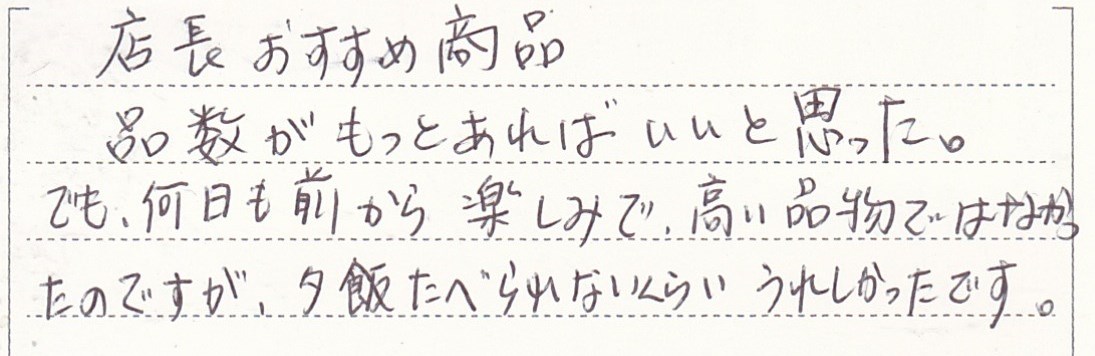 店長おすすめ商品
品数がもっとあればいいと思った。
でも、何日も前から楽しみで、高い品物ではなかっ
たのですが、夕飯たべられないくらいうれしかったです。